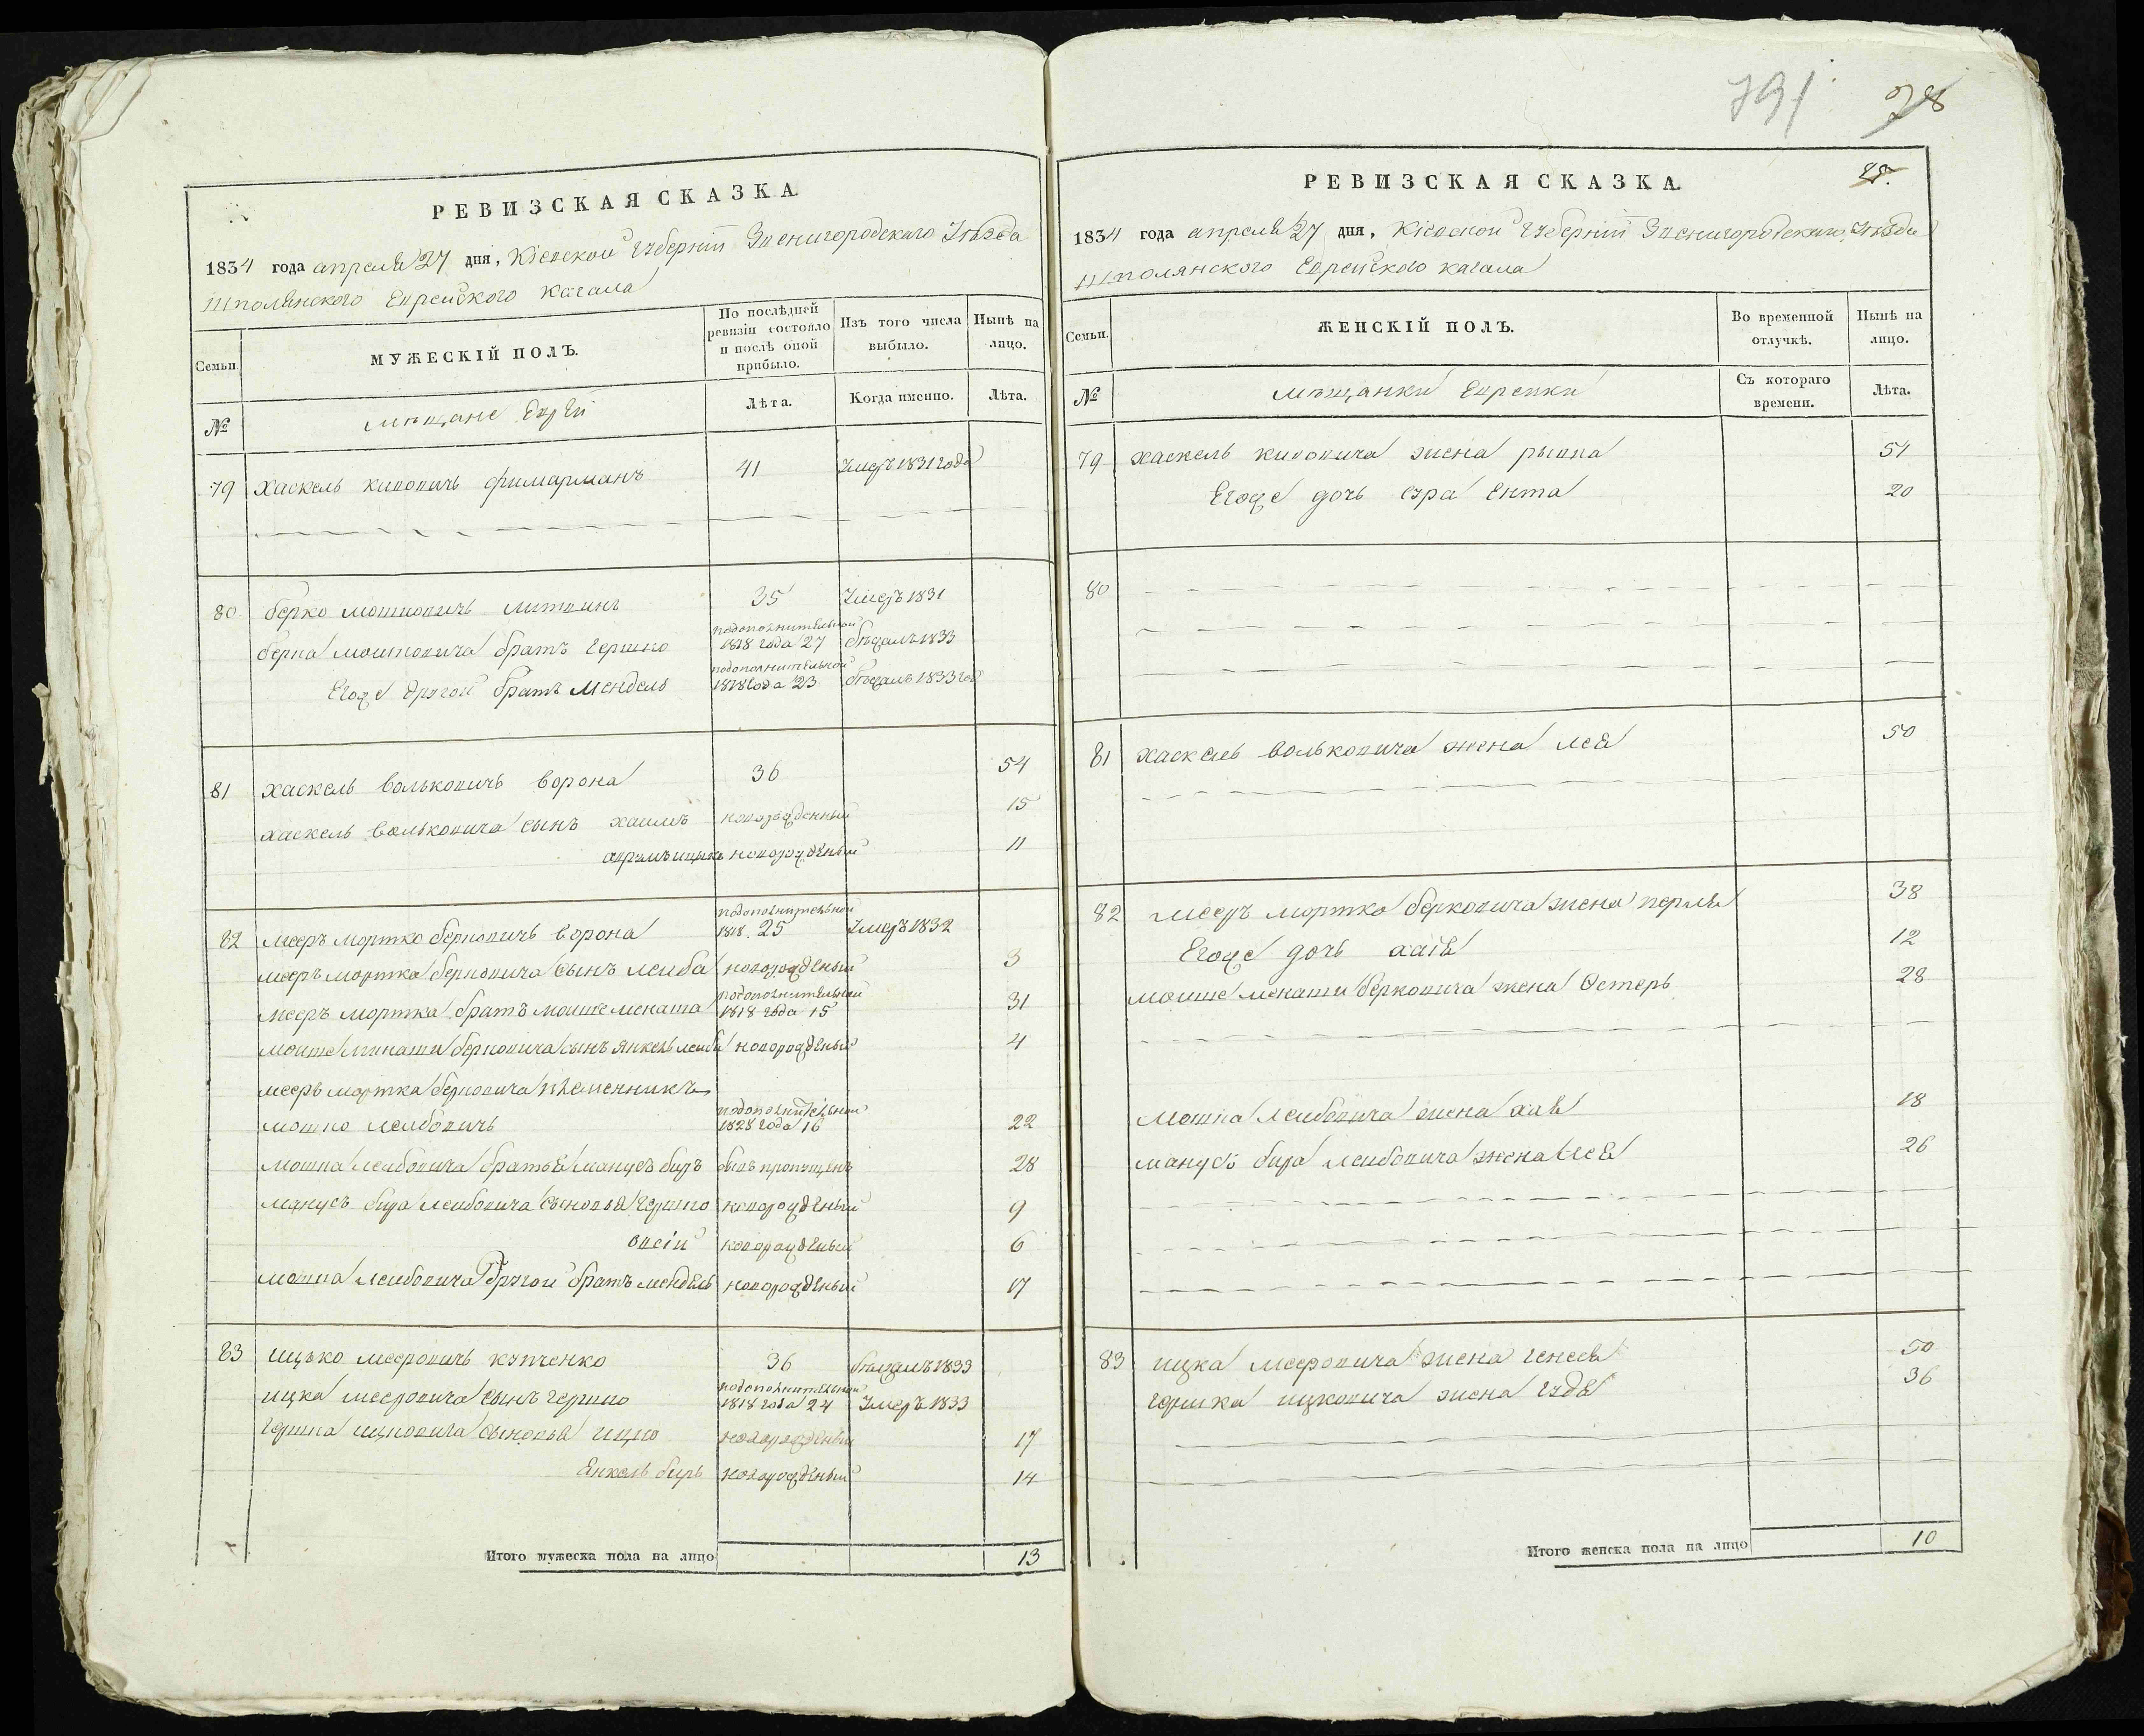 РЕВИЗСКАЯ СКАЗКА
1834 года апреля 27 дня, Кіевской Губерніи Звенигородскаго Уѣзда
Шполянского Еврейского Кагала
Семьи.
МУЖЕСКІЙ ПОЛЪ.
По послѣдней ревизіи состояло и послѣ оной прибыло.
Изъ того числа выбыло.
Нынѣ на лицо.
№
мѣщане Евреи
Лѣта.
Когда именно.
Лѣта.
79 хаскель кивовичъ фимарманъ 41 Умеръ 1831 года
80 берко мошковичъ литвинъ 35 Умеръ 1831
берка мошковича братъ гершко подополнительной 1818 года 27 бѣжалъ 1833
Егоже другой братъ мендель подополнительной 1818 года 23 бѣжалъ 1833 год
81 хаскель вольковичъ ворона 36 54
хаскель вольковича сынъ хаимъ новорожденный 15
аврамъ ицыкъ новорожденый 11
82 мееръ мортко берковичъ ворона подополнительной 1818. 25 Умеръ 1832
мееръ мортка берковича сынъ лейба новорожденый 3
мееръ мортка братъ мошше менаша подополнительной 1818 года 15 31
мошше минаши берковича сынъ янкель лейба новорожденый 4
мееръ мортка берковича племенникъ
мошко лейбовичъ подополнительной 1828 года 16 22
мошка лейбовича братья манусъ биръ былъ пропущенъ 28
манусъ бира лейбовича сыновья гершко новорожденый 9
овсій новорожденый 6
мошка лейбовича другой братъ мендель новорожденый 17
83 ицько мееровичъ купченко 36 бѣжалъ 1833
ицка мееровича сынъ гершко подополнительной 1818 года 24 Умеръ 1833
гершка ицковича сыновья ицко новорожденый 17
Янкель биръ новорожденый 14
Итого мужеска пола на лицо 13
791
78
РЕВИЗСКАЯ СКАЗКА
1834 года апреля 27 дня, Кіевской Губерніи Звенигородскаго Уѣзда
Шполянского Еврейского кагала
Семьи.
ЖЕНСКІЙ ПОЛЪ.
Во временной отлучкѣ.
Нынѣ на лицо.
№
мѣщанки Еврейки
Съ котораго времени.
Лѣта.
79 хаскель кивовича жена рывка 51
Егоже дочь сура Ента 20
80
81 хаскель вольковича жена лея 50
82 мееръ мортко берковича жена перля 38
Егоже дочь хаія 12
мошше менаши берковича жена Естеръ 28
мошка лейбовича жена хая 18
манусъ бира лейбовича жена лея 26
83 ицка мееровича жена генеся 50
гершка ицковича жена гудя 36
Итого женска пола на лицо 10